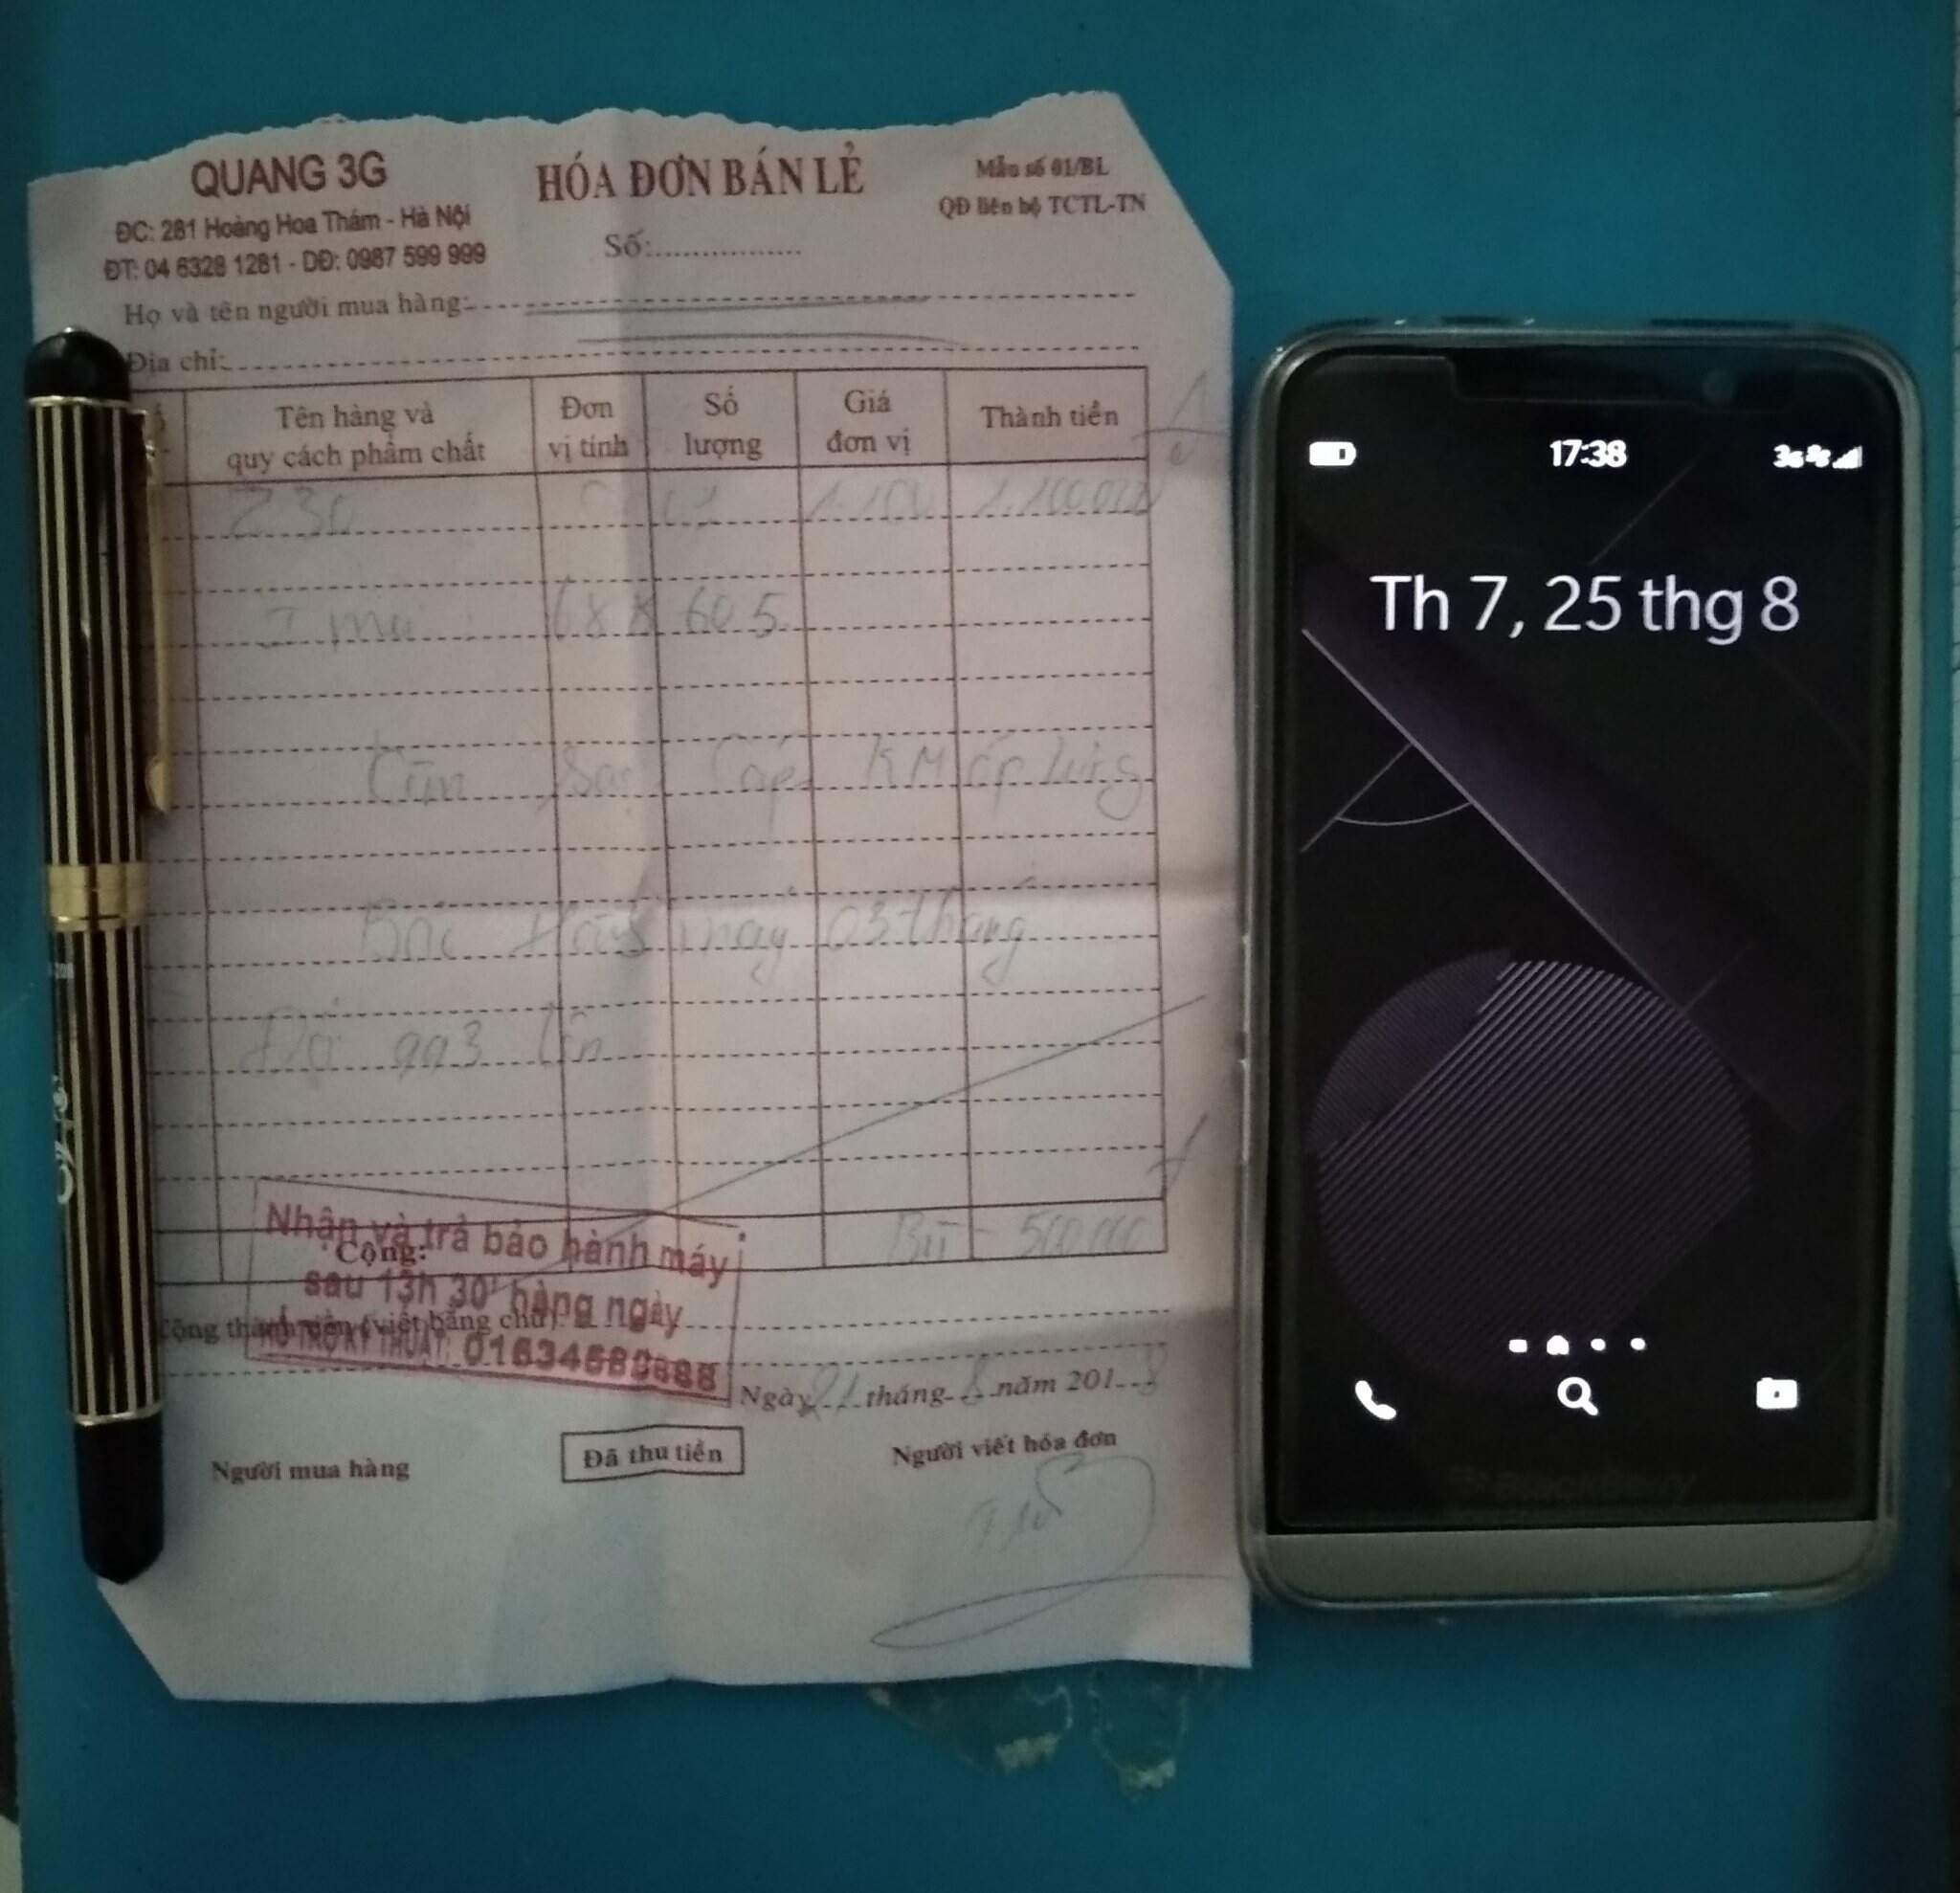 QUANG 3G
ĐC: 281 Hoàng Hoa Thám - Hà Nội
ĐT: 04 6328 1281 - DĐ: 0987 599 999
HÓA ĐƠN BÁN LẺ
Số:
Mẫu số 01/BL
QĐ liên bộ TCTL-TN
Họ và tên người mua hàng:
Địa chỉ:
Tên hàng và quy cách phẩm chất
Đơn vị tính
Số lượng
Giá đơn vị
Thành tiền
Z30
605
KM ốp lưng
máy 03 tháng
lần
Cộng:
500.000
Nhận và trả bảo hành máy
sau 13h 30' hàng ngày
HỖ TRỢ KỸ THUẬT:
Cộng thành tiền (viết bằng chữ):
Ngày 21 tháng 8 năm 2018
Người mua hàng
Đã thu tiền
Người viết hóa đơn
17:38
3G
Th 7, 25 thg 8
BlackBerry